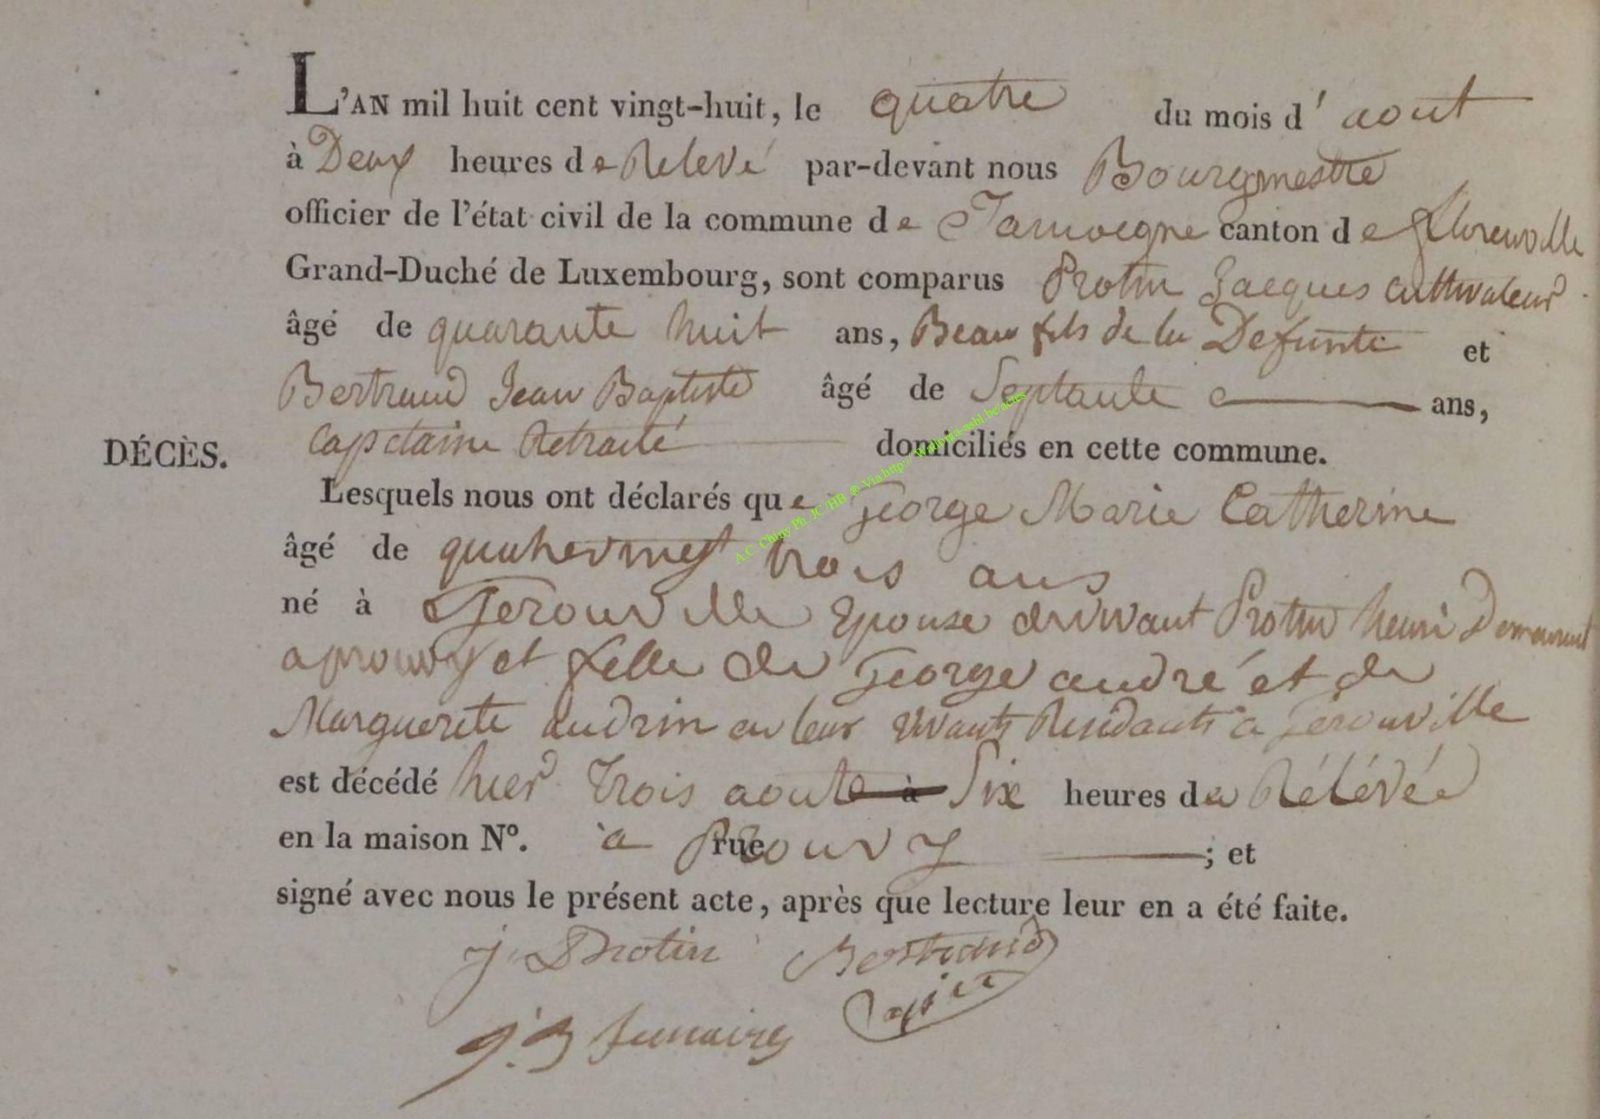 L'AN mil huit cent vingt-huit, le quatre du mois d' aout
à Deux heures de Relevé par-devant nous Bourgmestre
officier de l'état civil de la commune de Jamoigne canton de florenville
Grand-Duché de Luxembourg, sont comparus Protin Jacques cultivateur
âgé de quarante huit ans, Beau fils de la Defunte et
Bertrand Jean Baptiste âgé de Septante ans,
DÉCÈS.
capitaine Retraité domiciliés en cette commune.
Lesquels nous ont déclarés que George Marie Catherine
âgé de trois ans
né à Gerouville Epouse Protin henri
a prouvy et fille de George andré et de
Marguerite en leur vivants Residants a Gerouville
est décédé hier trois aout à Six heures de Rélévée
en la maison N°. a rue Prouvy ; et
signé avec nous le présent acte, après que lecture leur en a été faite.
j. Protin Bertrand
j. B
A.C. Chiny Ph. JC-HB @ Via http